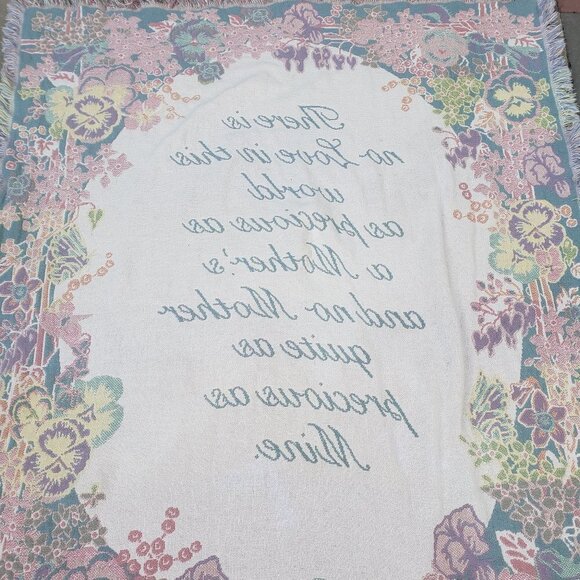 There is
no Love in this
world
as precious as
a Mother's
and no Mother
quite as
precious as
Mine.